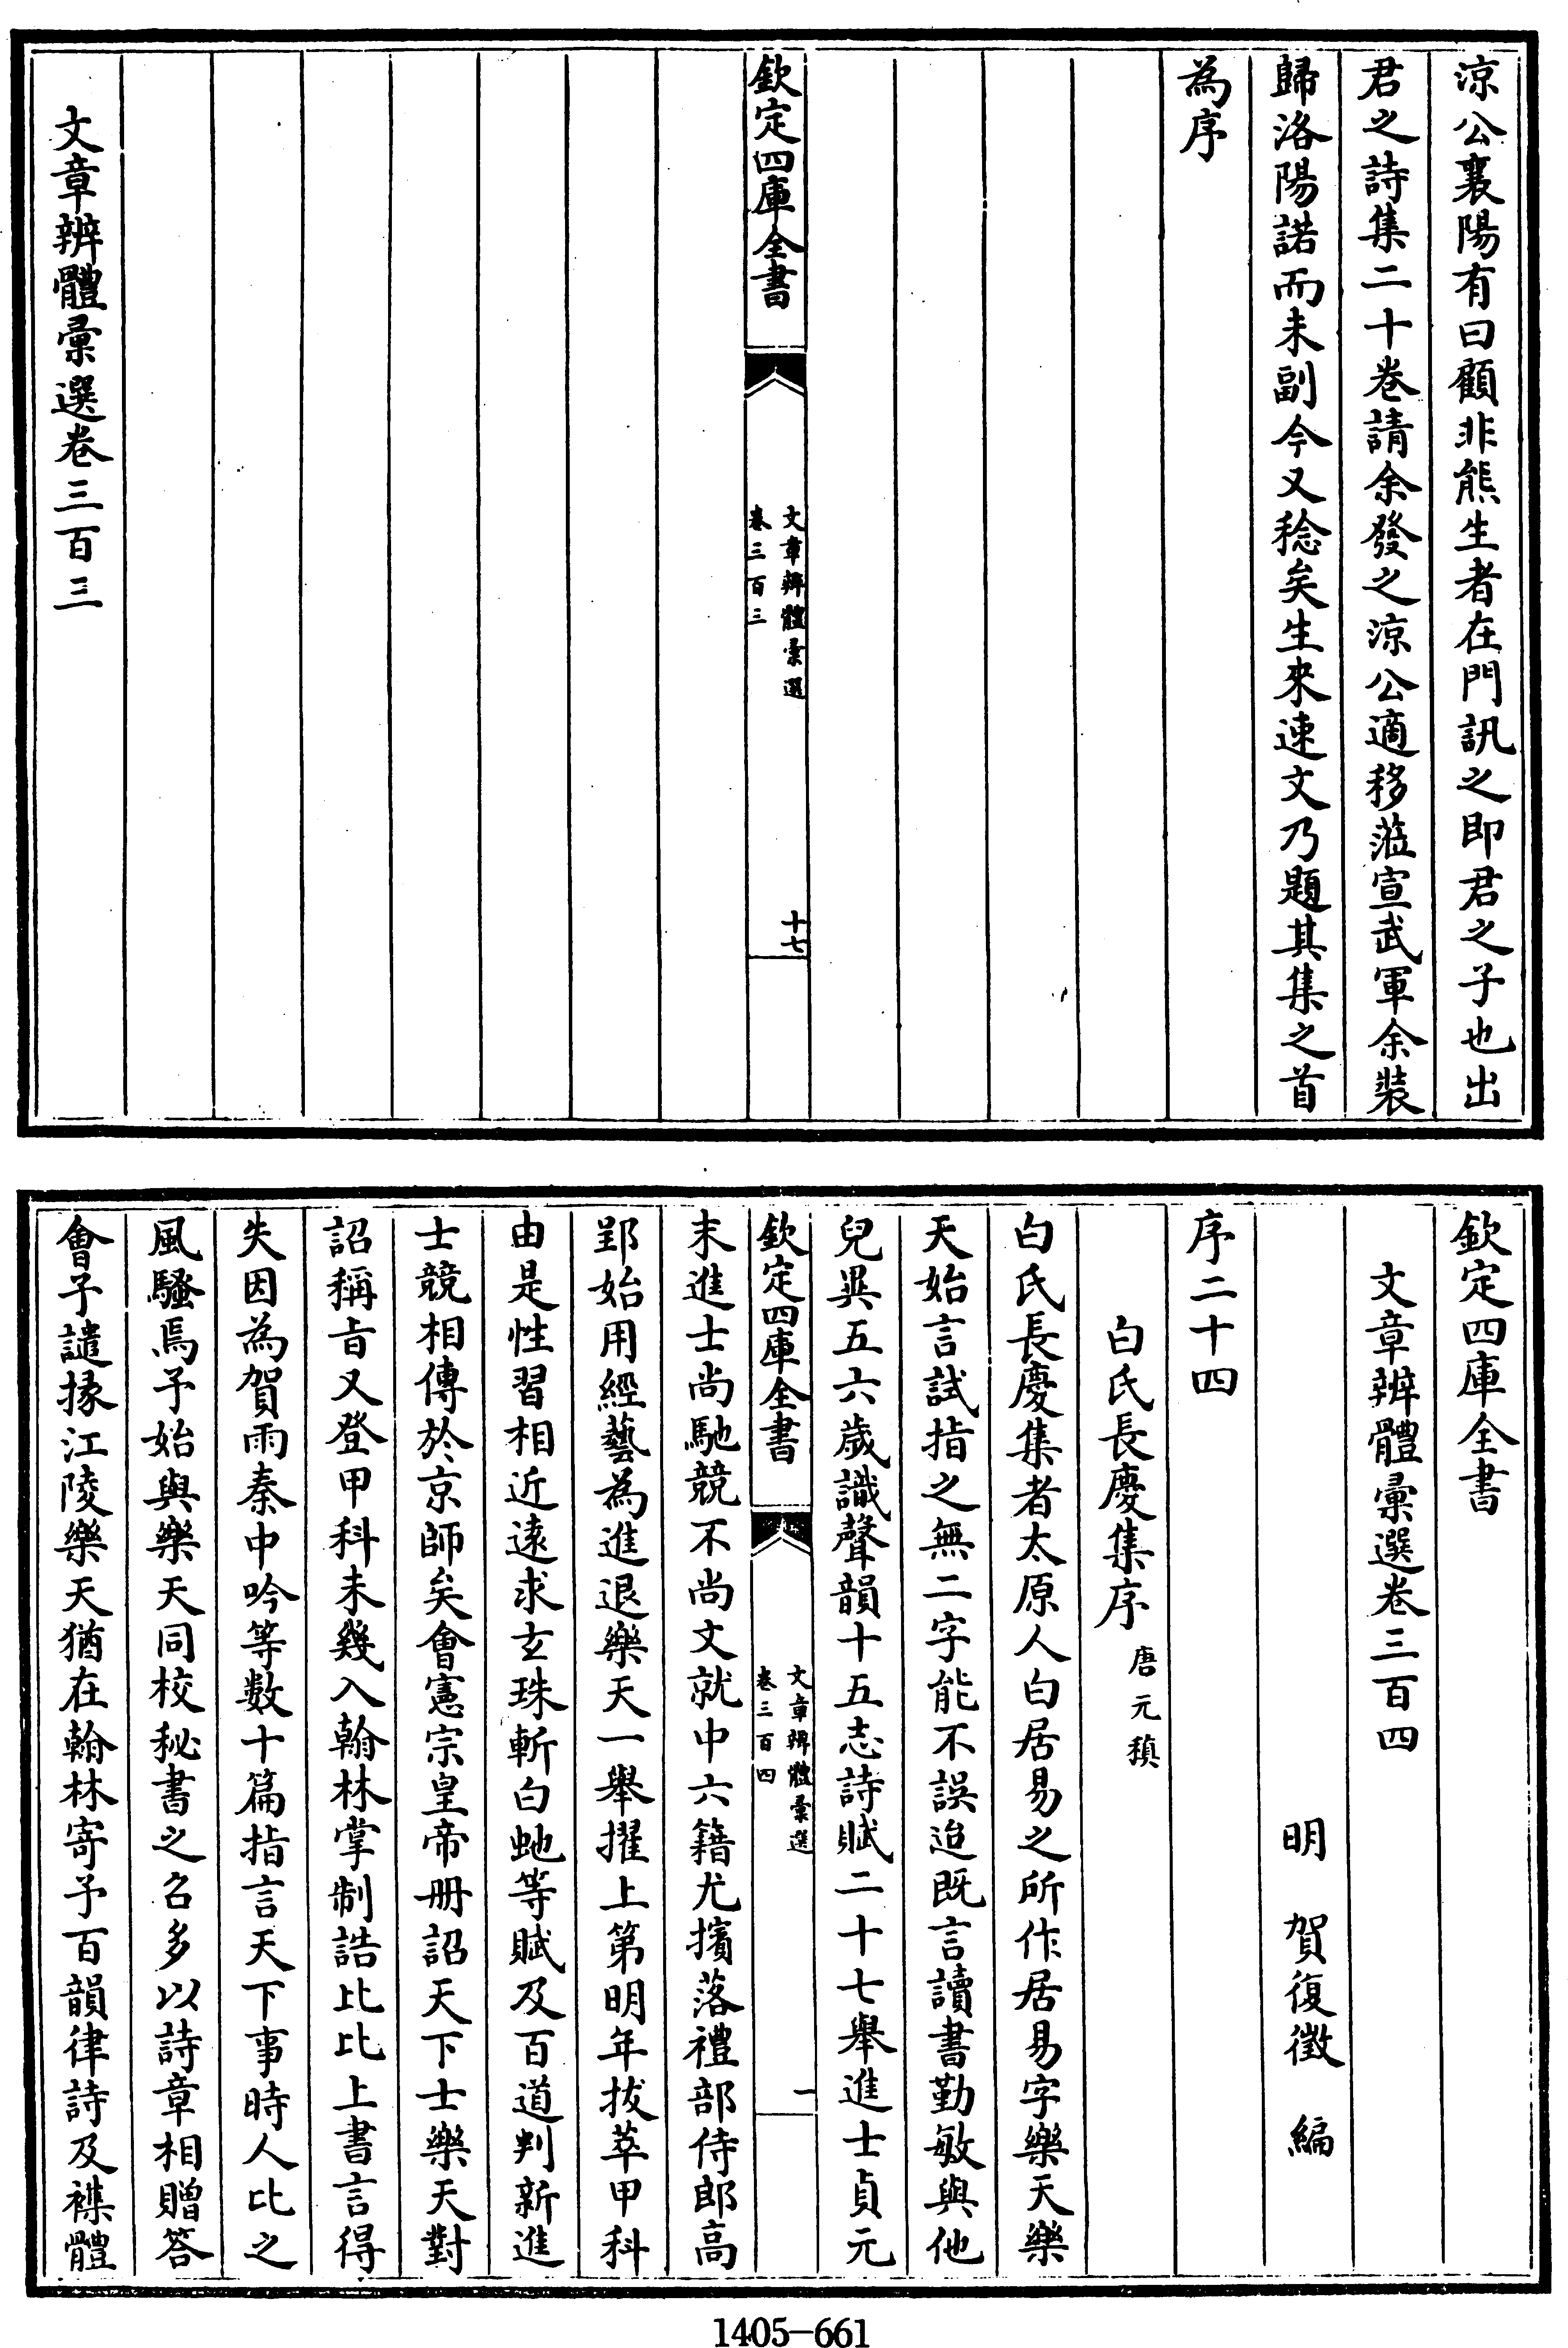 涼公襄陽有曰顧非熊生者在門訊之即君之子也出
君之詩集二十卷請余發之涼公適移涖宣武軍余裝
歸洛陽諾而未副今又稔矣生來速文乃題其集之首
為序
欽定四庫全書
文章辨體彙選
卷三百三
十七
文章辨體彙選卷三百三
欽定四庫全書
文章辨體彙選卷三百四
明 賀復徵 編
序二十四
白氏長慶集序 唐元稹
白氏長慶集者太原人白居易之所作居易字樂天樂
天始言試指之無二字能不誤迨既言讀書勤敏與他
兒異五六歲識聲韻十五志詩賦二十七舉進士貞元
欽定四庫全書
文章辨體彙選
卷三百四
一
末進士尚馳競不尚文就中六籍尤擯落禮部侍郎高
郢始用經藝為進退樂天一舉擢上第明年拔萃甲科
由是性習相近遠求玄珠斬白虵等賦及百道判新進
士競相傳於京師矣會憲宗皇帝冊詔天下士樂天對
詔稱旨又登甲科未幾入翰林掌制誥比比上書言得
失因為賀雨秦中吟等數十篇指言天下事時人比之
風騷焉予始與樂天同校秘書之名多以詩章相贈答
會予譴掾江陵樂天猶在翰林寄予百韻律詩及襍體
1405-661